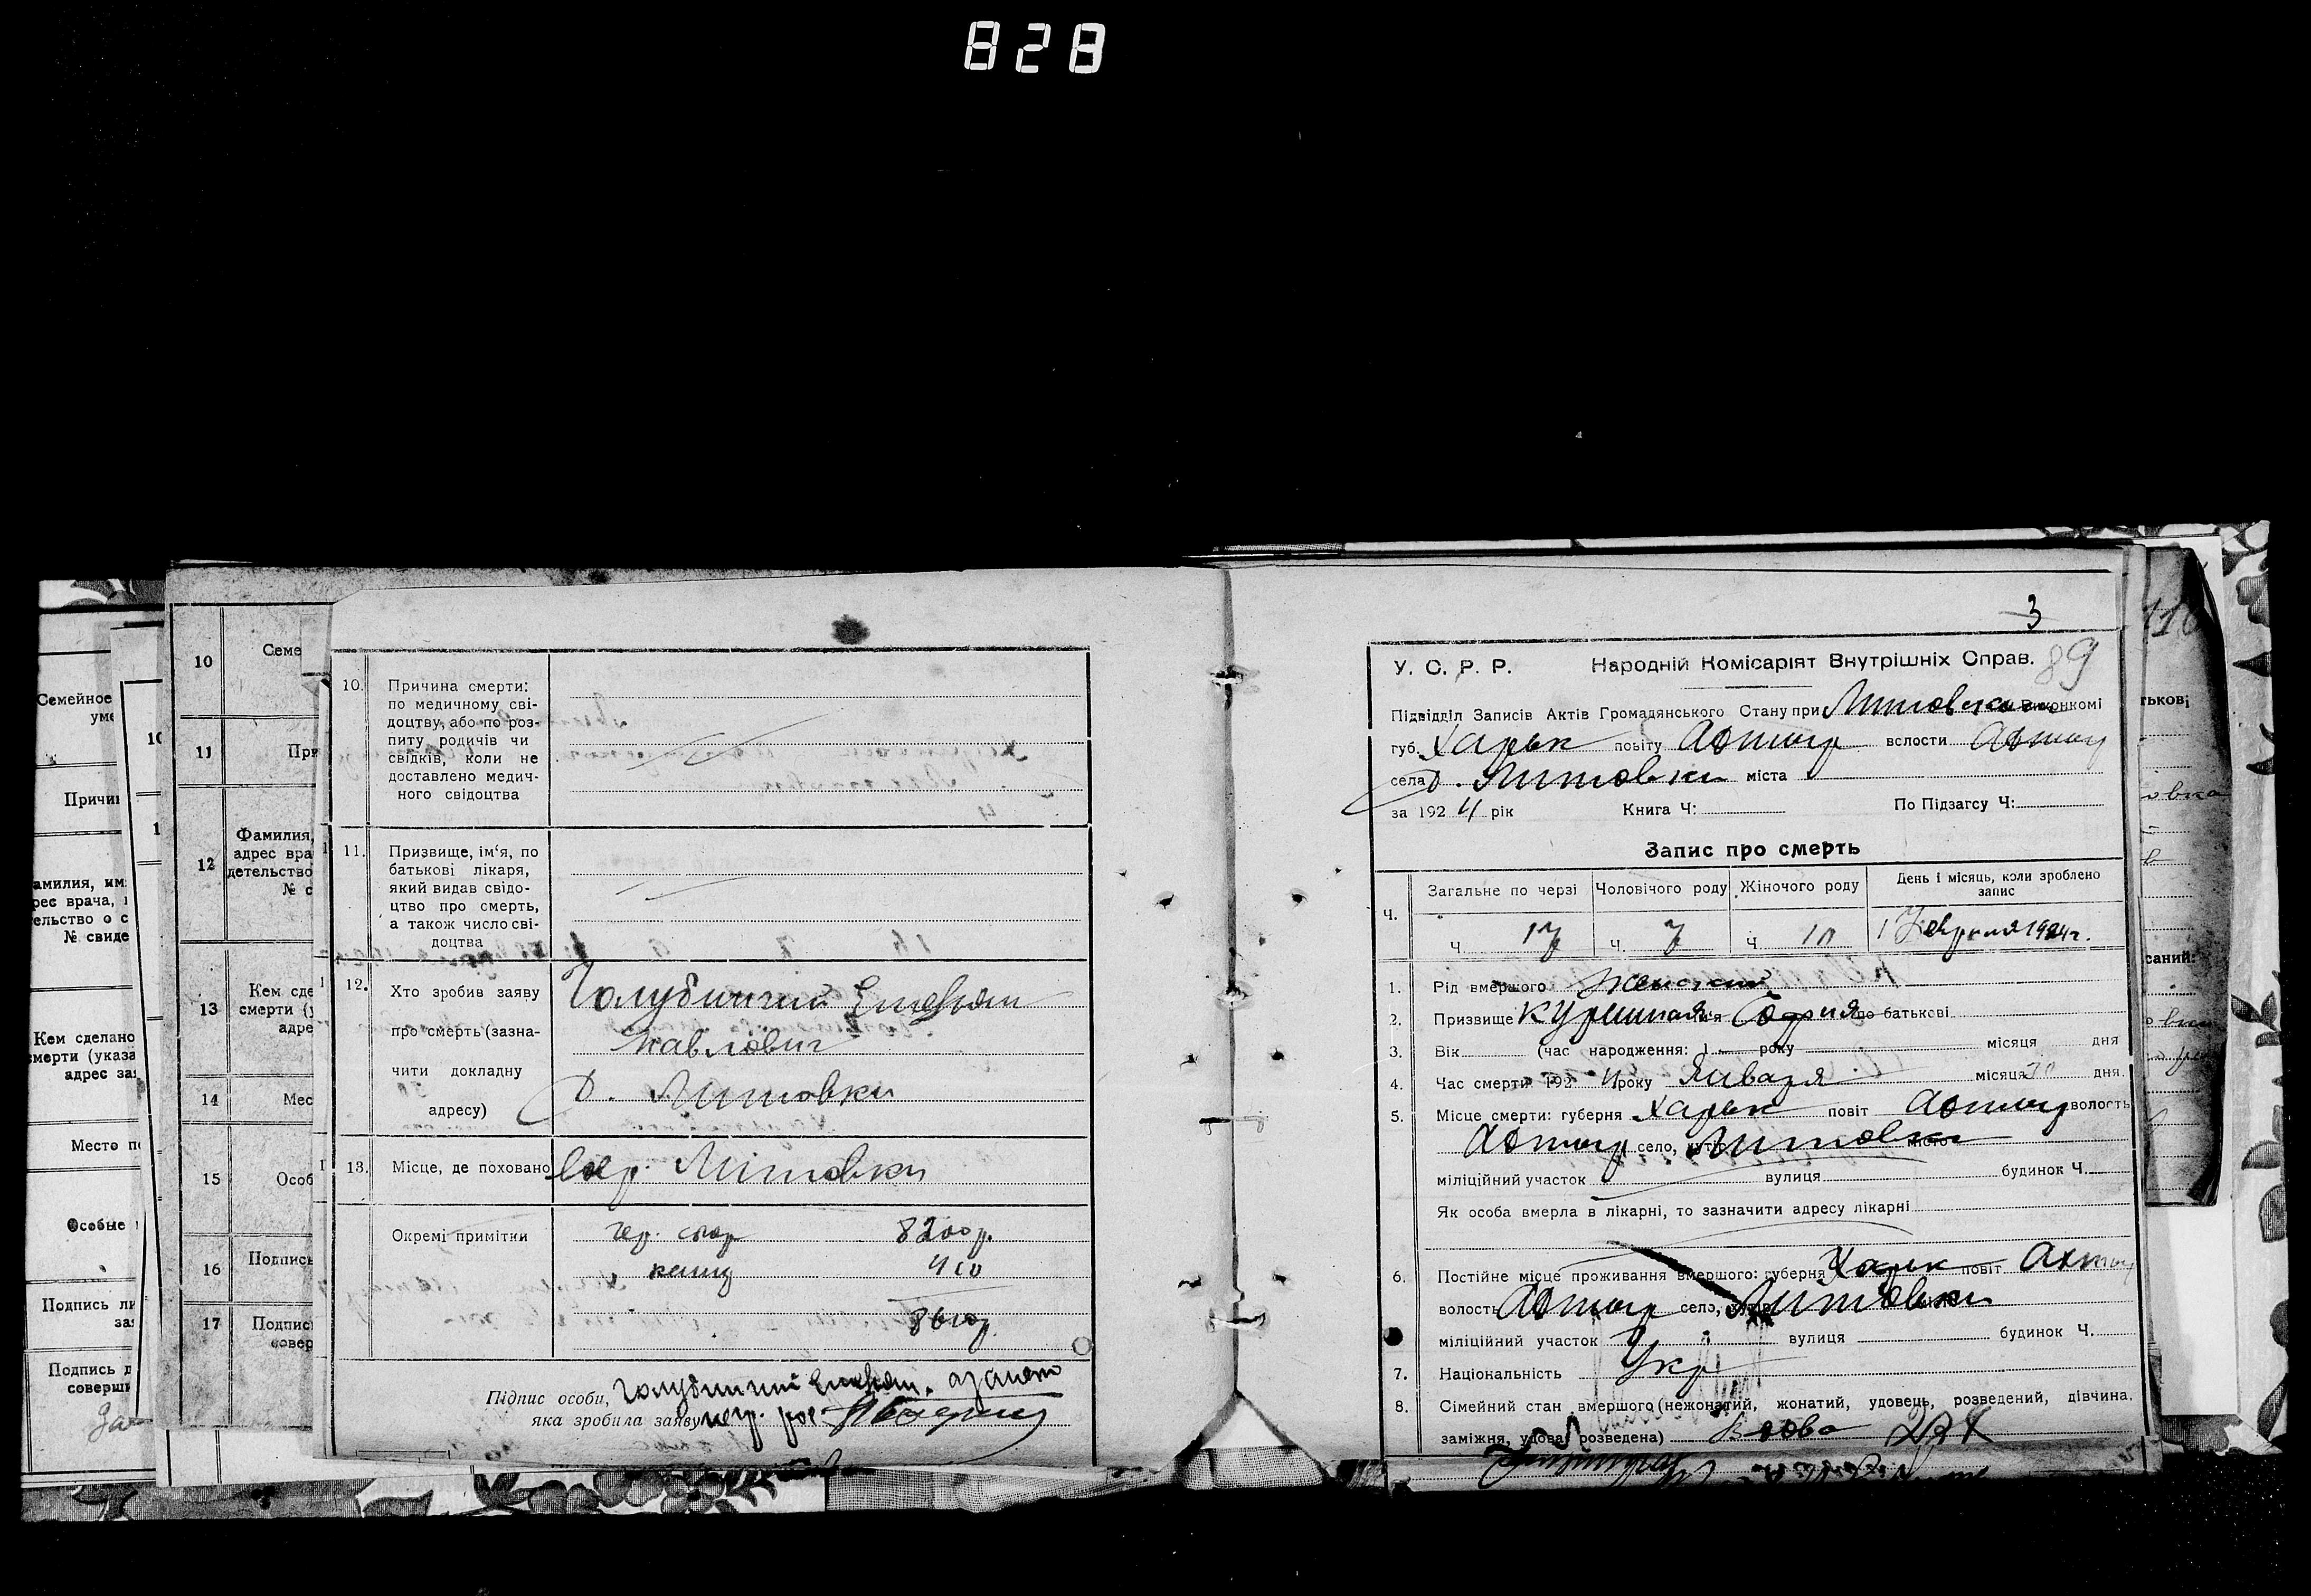 828
10
Семе
11
При
12
Фамилия,
адрес вра
детельство
№ с
13
Кем сде
смерти (у
адре
14
Мес
15
Особ
16
Подпись
17
Подпис
совер
Семейное
уме
Причин
амилия, им
рес врача,
ельство о с
№ свиде
Кем сделано
смерти (указа
адрес зая
Место по
Особые
Подпись ли
зая
Подпись д
соверш
10.
Причина смерти:
по медичному сві-
доцтву, або по роз-
питу родичів чи
свідків, коли не
доставлено медич-
ного свідоцтва
11.
Призвище, ім‘я, по
батькові лікаря,
який видав свідо-
цтво про смерть,
а також число сві-
доцтва
12.
Хто зробив заяву
про смерть (зазна-
чити докладну
адресу)
Голубничий Емельян
Павлович
д. Литовки
13.
Місце, де поховано
Літовки
Окремі примітки
гер. сбор 8200р.
книж 410
8610р
Підпис особи, Голубничий Емельян.
яка зробила заяву негр. рос.
3
89
У. С. Р. Р. Народній Комісаріят Внутрішніх Справ.
Підвідділ Записів Актів Громадянського Стану при Литовском Виконкомі
губ. Харьк повіту Ахтыр вслости Ахтыр
села д. Литовки міста
за 1924 рік Книга Ч: По Підзагсу Ч:
Запис про смерть
Ч.
Загальне по черзі Чоловічого роду Жіночого роду День і місяць, коли зроблено запис
Ч. 17 Ч. 7 Ч. 10 1 Февраля 1924 г.
1. Рід вмершого Женский
2. Призвище Куришная ім'я София по батькові
3. Вік (час народження: 1 року місяця дня
4. Час смерти 1924 року Января місяця 30 дня.
5. Місце смерти: губерня Харьк повіт Ахтыр волость
Ахтыр село, хутір Литовки місто
міліційний участок вулиця будинок Ч.
Як особа вмерла в лікарні, то зазначити адресу лікарні
6. Постійне місце проживання вмершого: губерня Харьк повіт Ахтыр
волость Ахтыр село, хутір Литовки
міліційний участок вулиця будинок Ч.
7. Національність Укр
8. Сімейний стан вмершого (нежонатий, жонатий, удовець, розведений, дівчина,
заміжня, удова, розведена) Вдова
тькові
саний: